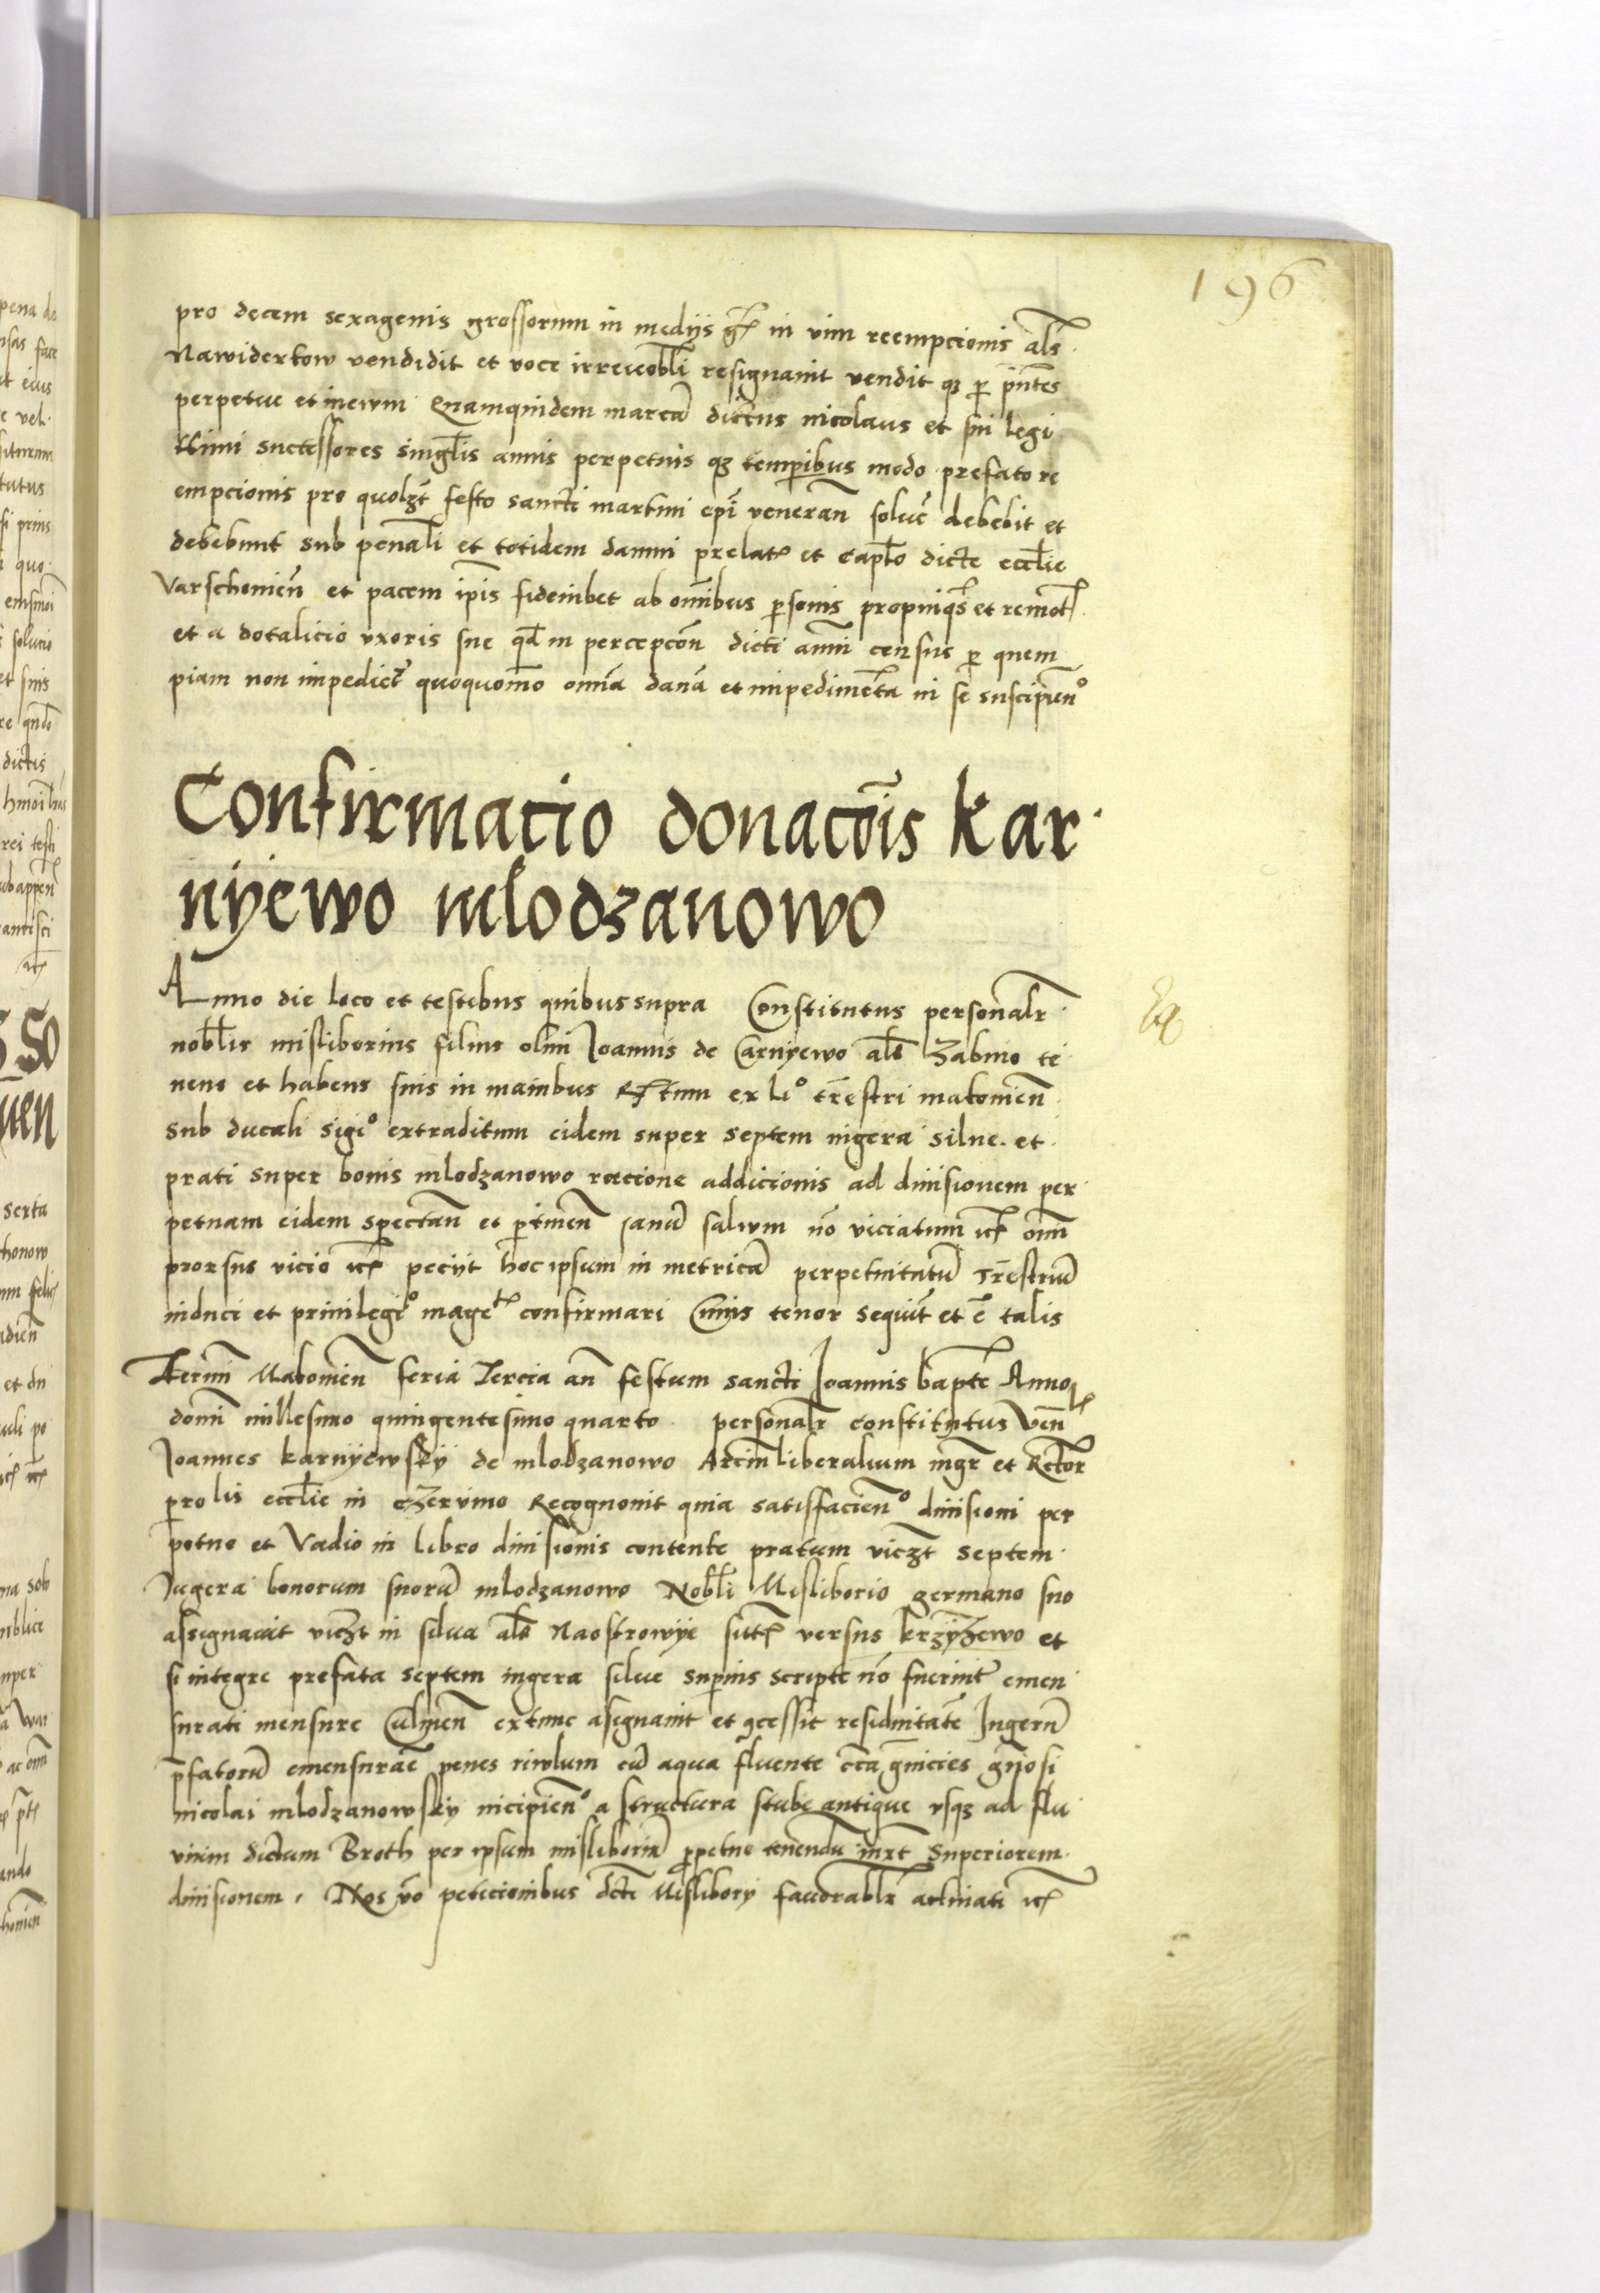 196
pro decem sexagenis grossorum in medijs gr in vim reempcionis als
Nawiderkow vendidit et voce irrevobli resignauit vendit qz per pntes
perpetue et inewm Quamquidem marca dictus nicolaus et sui legi
ttimi successores singlis annis perpetuis qz temporibus modo prefato re
empcionis pro quolzt festo sancti martini epi veneran solue debebit et
debebunt sub pena li et totidem damni prelat et caplo dicte ecclie
Varschouien et pacem ipis fideiubet ab omibus personis propinqs et remot
et a dotalicio vxoris sue qd in percepcon dicti anni census per quem
piam non impedict quoquomo omia dana et impedimeta in se suscipien
Confirmacio donacois kar
nyewo mlodzanowo
Anno die loco et testibus quibus supra Constitutus personalr
noblis misliborius filius olim Joannis de Carnyewo als zabino te
nens et habens suis in manibus Rtum ex li terrestri makouien
sub ducali sigi extraditum eidem super septem iugera silue et
prati super bonis mlodzanowo racione addicionis ad diuisionem per
petuam eidem spectan et ptinen sanu saluum no viciatum etc omi
prorsus vicio etc peciit hoc ipsum in metrica perpetuitatu Trestriu
induci et priuilegi mage confirmari Cuius tenor sequit et e talis
Termi Makouien feria Tercia an festum sancti Joannis bapte Anno
domi millesimo quingentesimo quarto personalr constitutus Ven
Joannes karnyewsky de mlodzanowo Arcium liberalium mgr et Rector
pro lis ecclie in czeruino Recognouit quia satisfacien diuisioni per
petue et Vadio in libro diuisionis contente pratum viczt septem
Jugera bonorum suoru mlodzanowo Nobli Misliborio germano suo
assignauit viczt in silua als Naostrowye sitt versus krzyzewo et
si integre prefata septem iugera silue supius scripte no fuerint emen
surati mensure Culmen extunc asignauit et 9cessit residuitate Jugeru
pfatoru emensurac penes riwlum cu aqua fluente cca gnicies gnosi
nicolai mlodzanowsky incipien a structura stube antique vsqz ad flu
uium dictum Broth per ipsum misliboriu ppetue tenendu iuxt superiorem
diuisionem. Nos vo peticionibus dcti Mislibory fauorablr acliuati etc